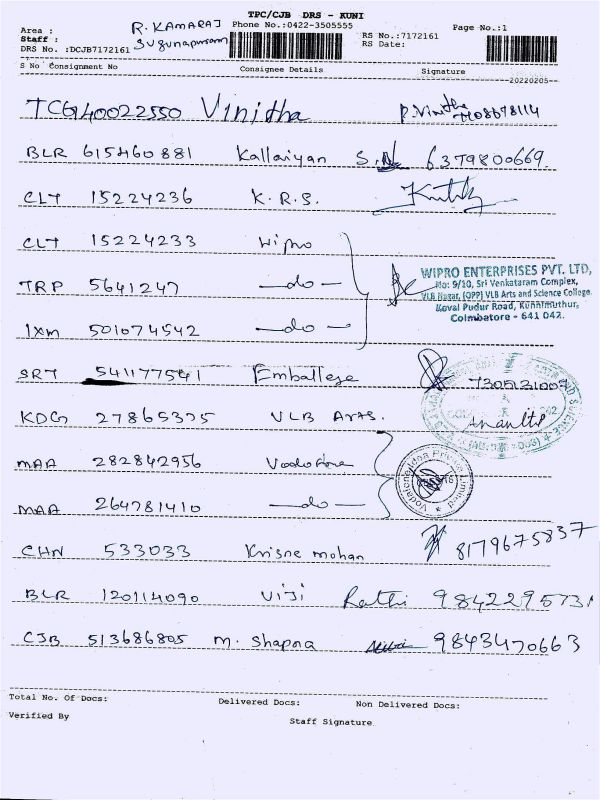 TPC/CJB DRS - KUNI
Area : R. KAMARAJ Phone No.:0422-3505555 Page No.:1
Staff : Sugunapuram RS No.:7172161
DRS No. :DCJB7172161 RS Date:
S No Consignment No Consignee Details Signature
20220205
TCG40022550 Vinitha P. Vinitha
BLR 615460881 Kallaiyan S. 6379800669.
CLT 15224236 K.R.S.
CLT 15224233 Wipro
TRP 5641247 —do—
IXM 501074542 —do—
WIPRO ENTERPRISES PVT. LTD,
No: 9/10, Sri Venkataram Complex,
VLB Nagar, (OPP) VLB Arts and Science College
Koval Pudur Road, Kuniamuthur,
Coimbatore - 641 042.
SRT 541177541 Emballege
KDG 27865375 VLB Arts.
MAA 282842956 Vodofone
MAA 264781410 —do—
CHN 533033 Krisne mohan 8179675837
BLR 120114090 Viji Rathi 9842295731
CJB 513686805 M. Shapna 9843470663
Total No. Of Docs: Delivered Docs: Non Delivered Docs:
Verified By Staff Signature